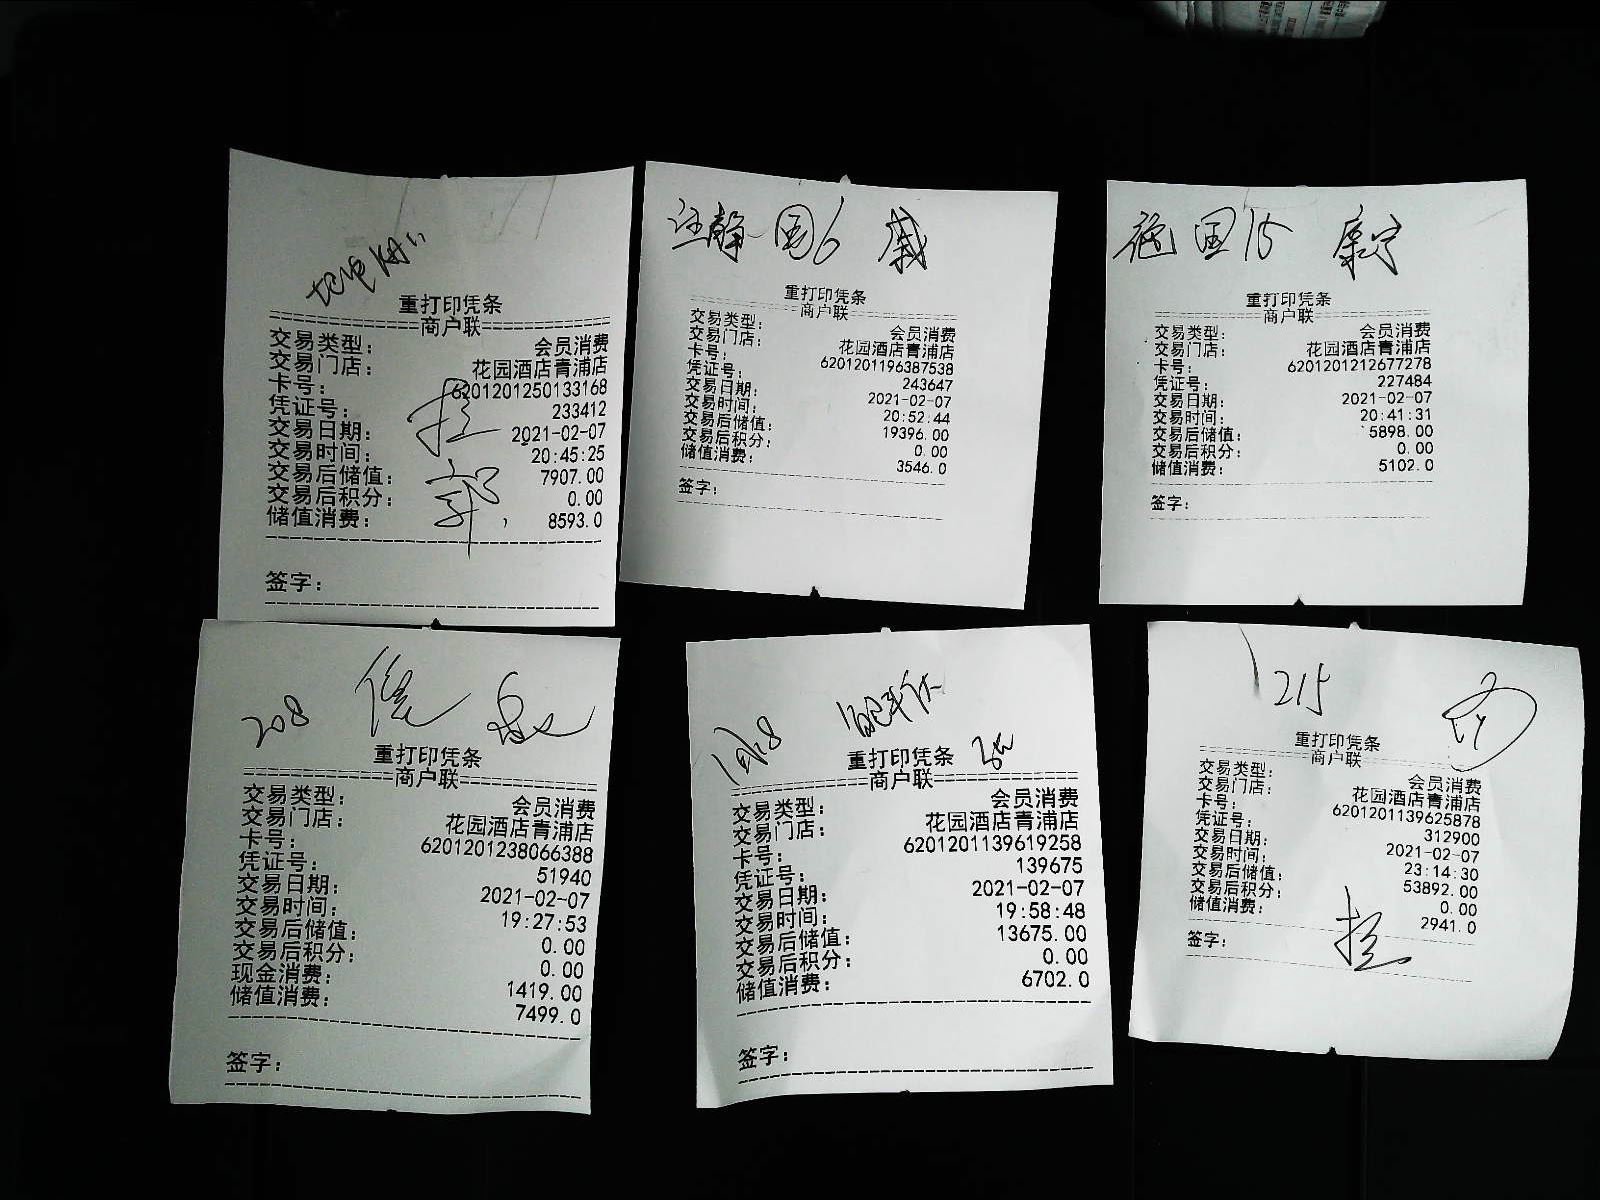 重打印凭条
商户联
交易类型： 会员消费
交易门店： 花园酒店青浦店
卡号： 6201201250133168
凭证号： 233412
交易日期： 2021-02-07
交易时间： 20:45:25
交易后储值： 7907.00
交易后积分： 0.00
储值消费： 8593.0
签字：
汪静 国6 戚
重打印凭条
商户联
交易类型： 会员消费
交易门店： 花园酒店青浦店
卡号： 6201201196387538
凭证号： 243647
交易日期： 2021-02-07
交易时间： 20:52:44
交易后储值： 19396.00
交易后积分： 0.00
储值消费： 3546.0
签字：
国15
重打印凭条
商户联
交易类型： 会员消费
交易门店： 花园酒店青浦店
卡号： 6201201212677278
凭证号： 227484
交易日期： 2021-02-07
交易时间： 20:41:31
交易后储值： 5898.00
交易后积分： 0.00
储值消费： 5102.0
签字：
208
重打印凭条
商户联
交易类型： 会员消费
交易门店： 花园酒店青浦店
卡号： 6201201238066388
凭证号： 51940
交易日期： 2021-02-07
交易时间： 19:27:53
交易后储值： 0.00
交易后积分： 0.00
现金消费： 1419.00
储值消费： 7499.0
签字：
重打印凭条
商户联
交易类型： 会员消费
交易门店： 花园酒店青浦店
卡号： 6201201139619258
凭证号： 139675
交易日期： 2021-02-07
交易时间： 19:58:48
交易后储值： 13675.00
交易后积分： 0.00
储值消费： 6702.0
签字：
215
重打印凭条
商户联
交易类型： 会员消费
交易门店： 花园酒店青浦店
卡号： 6201201139625878
凭证号： 312900
交易日期： 2021-02-07
交易时间： 23:14:30
交易后储值： 53892.00
交易后积分： 0.00
储值消费： 2941.0
签字：